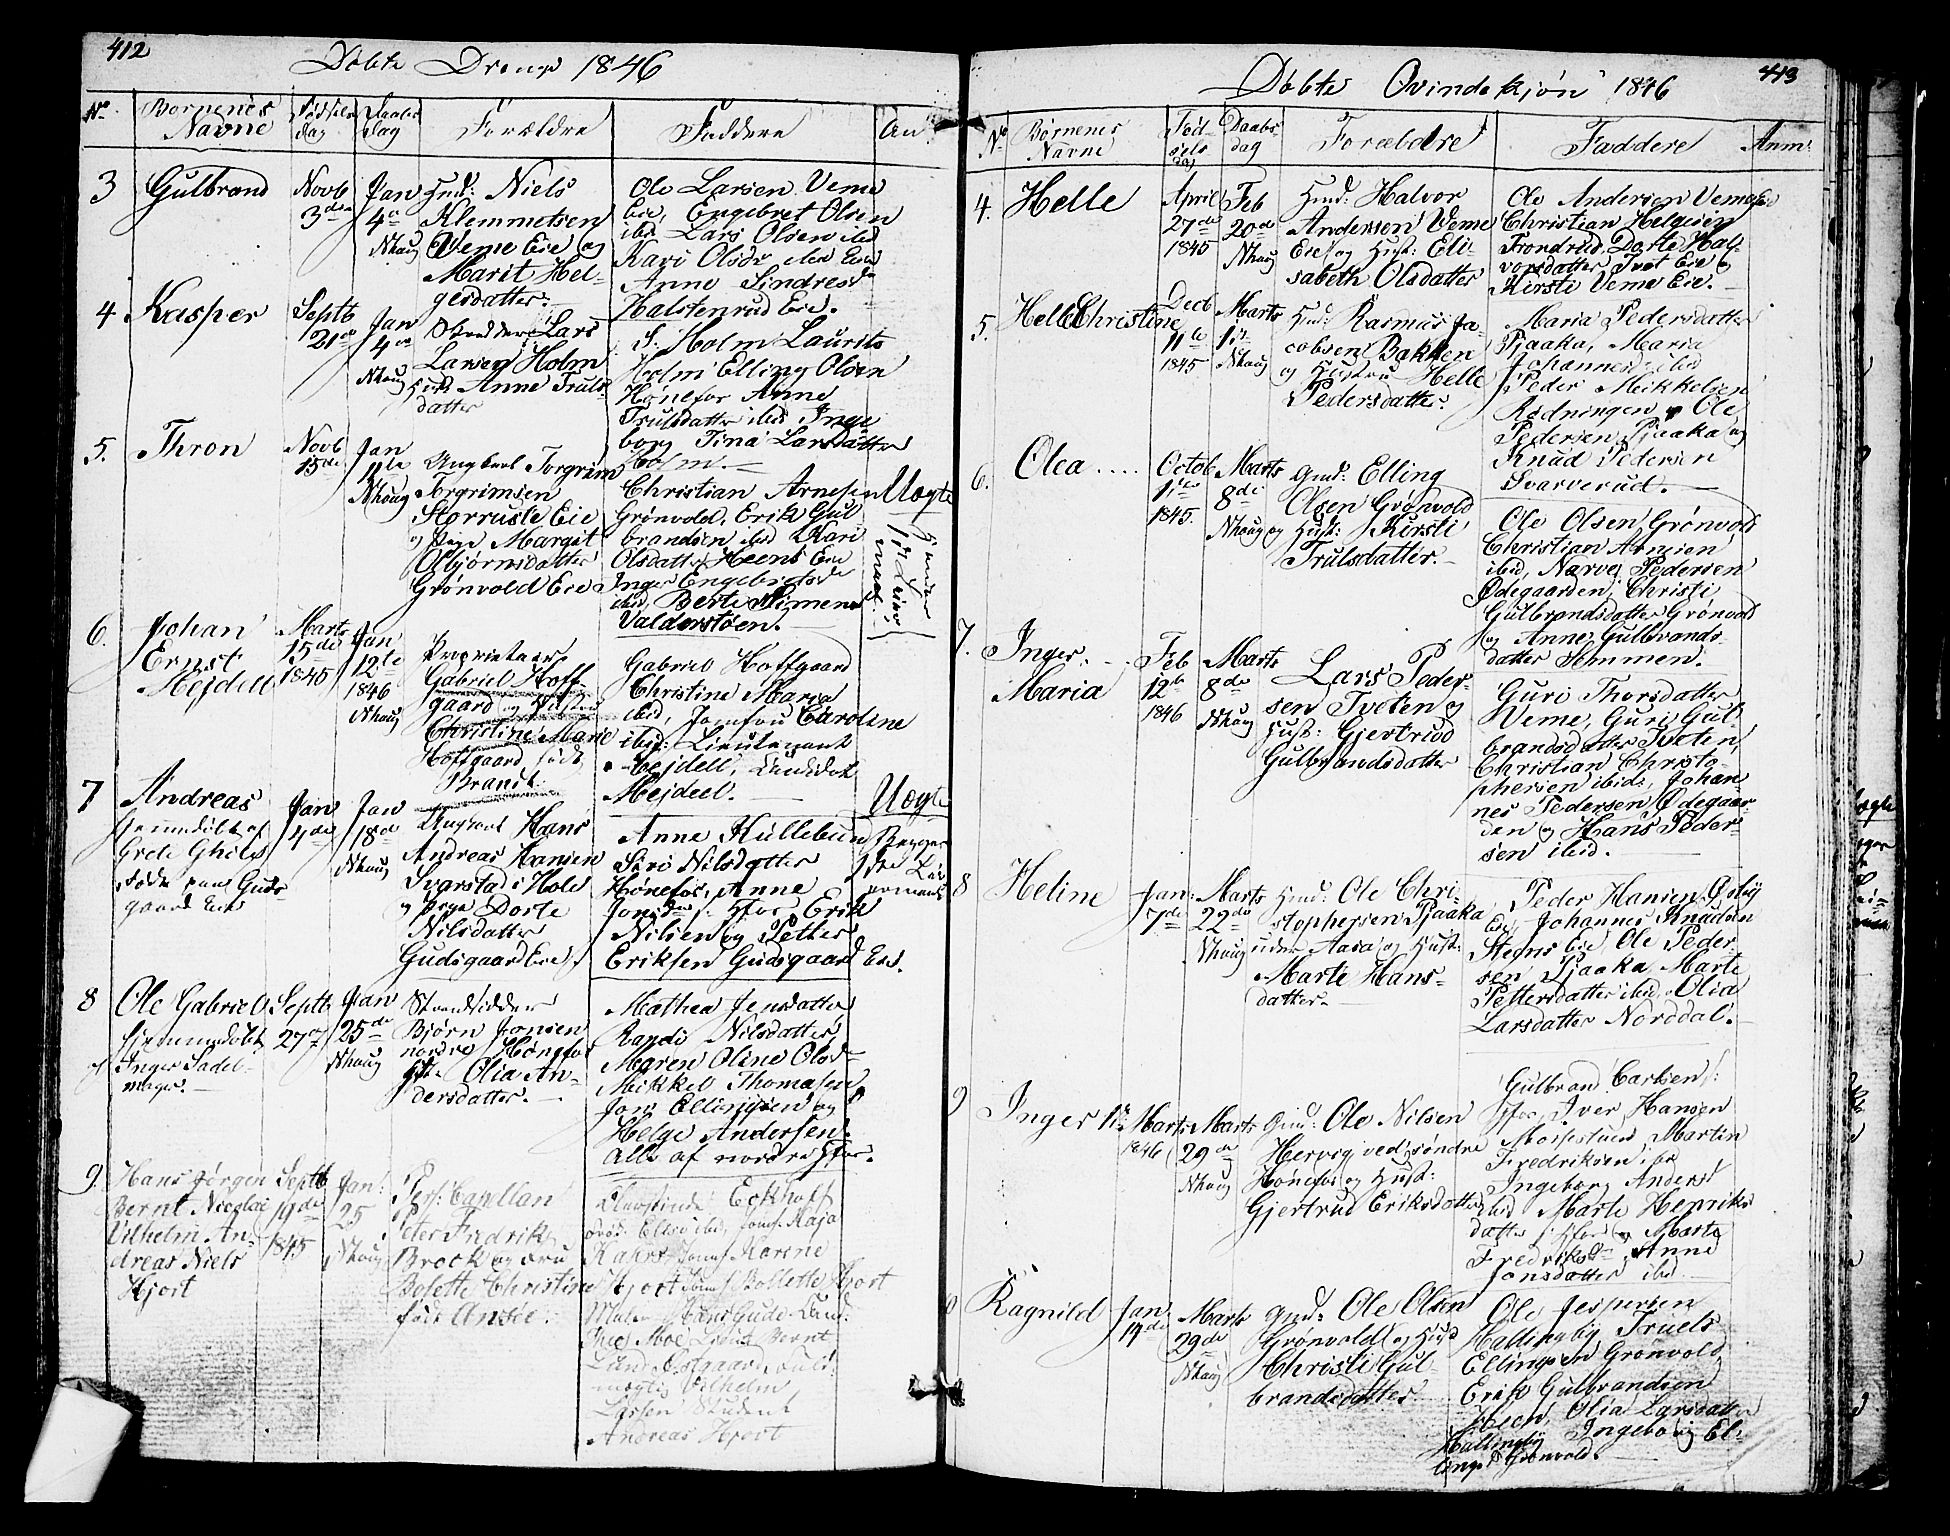 412
Døbte Drenge 1846
No.
Børnenes
Navne
Fødsels
dag
Daabs
dag
Forældre
Faddere
An
3
Gulbrand
Novb
3de
Jan
4de
Nhaug
Gmd: Niels
Klemmetsen
Veme Eie og
Marit Hel-
gesdatter.
Ole Larsen Veme
Eie, Engebret Olsen
ibid Lars Olsen ibid
Kari Olsdr ibid Eie
Anne Sindresd
Halstenrud Eie.
4
Kasper
Septb
21de
Jan
4de
Nhaug
Lars
Larsen Holm
Hust Anne Truls
datter
S. Holm Laurits
Holm Elling Olsen
Hønefos Anne
Trulsdatter ibid Inge
borg Tina Larsdatter
Holm.
5.
Thron
Novb
15de
Jan
11te
Nhaug
Ungkarl Torgrim
Torgrimsen
Eie
og Pige Margit
Asbjørnsdatter
Grønvold Eie
Christian Arnesen
Grønvold, Erik Gul
brandsen ibid Kari
Olsdatter Heens Eie
Inger Engebretsd
ibid, Berte Simens
Valderstøen.
Uægte
6.
Johan
Ernst
Mejdell
Marts
15de
1845
Jan
12te
1846
Nhaug
Proprietair
Gabriel Hoff
gaard og Hustru
Christine Marie
Hoffgaard født
Brandt.
Gabriel Hoffgaard
Christine Maria
ibid, Jomfru Caroline
ibid: Lieutenant
Mejdell,
Mejdell.
7
Andreas
hjemmedøbt af
Grete
født paa Guds
gaard Eie
Jan
4de
Jan
18de
Nhaug
Ungkarl Hans
Andreas Hansen
Svarstad i Hole
og Pige Dorte
Nilsdatter
Gudsgaard Eie
Anne Kullebun
Siri Nilsdatter
Hønefos, Anne
Jonsdr Erik
Nilsen og Petter
Eriksen Gudsgaard Eie.
Uægte
8
Ole Gabriel
hjemmedøbt
af Inger Sadel-
mager.
Septb
27de
Jan
25de
Nhaug
Strandsidder
Bjørn Jonsen
nordre Hønefos
Olia An-
dersdatter.
Mathea Jensdatter
Randi Nilsdatter
Maren Oline Olsd
Mikkel Thomasen
Jon Ellingsen og
Helge Andersen
alle af nordre Hfos.
9.
Hans Jørgen
Bernt Nicolai
Vilhelm An-
dreas Niels
Hjort
Septb
19de
1845
Jan:
25
Nhaug
Pers: Capellan
Peter Fredrik
Brock og Fru
Bolette Christine
født
Eckhoff
Jomf: Kaja
Jomf Karine
Hjort Jomf Bolette Hjort
Hans Gude
Moe Bernt
Lund
Vilhelm
Larsen Student
Andreas Hjort
413
Døbte Qvindekjøn 1846
No
Børnenes
Navne
Fød-
sels
dag
Daabs-
dag
Forældre
Faddere
Anm:
4.
Helle
April
27de
1845
Feb
20de
Nhaug
Gmd: Halvor
Andersen Veme
Eie og Hust: Eli-
sabeth Olsdatter
Ole Andersen Veme Eie
Christian Helgesen
Frondrud Dorte Hal-
vorsdatter Tvet Eie og
Kirsti Veme Eie.
5.
Helle Christine
Decb
11te
1845
Marts
1ste
Nhaug
Gmd: Rasmus Ja-
cobsen Bakken
og Hustru Helle
Pedersdatter.
Maria Pedersdatter
Pjaaka, Maria
Johannesd ibid
Peder Mikkelsen
Rødningen og Ole
Pedersen Pjaaka og
Knud Pedersen
Svarverud.
6.
Olea ....
Octob
1ste
1845.
Marts
8de
Nhaug
Gmd: Elling
Olsen Grønvold
og Hust: Kirsti
Trulsdatter.
Ole Olsen Grønvold
Christian Arnesen
ibid, Narve Pedersen
Ødegaarden, Christi
Gulbrandsdatter Grønvold
og Anne Gulbrands-
datter Semmen.
7.
Inger
Maria
Feb
12te
1846
Marts
8de
Nhaug
Lars Peder-
sen Tveten og
Hust: Gjertrud
Gulbrandsdatter
Guri Thorsdatter
Veme, Guri Gul
brandsdatter Tveten,
Christian Christo-
phersen ibid, Johan-
nes Pedersen Ødegaar-
den og Hans Peder-
sen ibid.
8
Heline
Jan:
7de
Marts
22de
Nhaug
Gmd: Ole Chri-
stophersen Pjaaka
under Aasa og Hust:
Marte Hans-
datter.
Peder Hansen Østby
Eie, Johannes Knudsen
Stegns Eie Ole Peder-
sen Pjaaka, Marte
Pettersdatter ibid, Olia
Larsdatter Norddal.
9
Inger
1ste Marts
1846
Marts
29de
Nhaug
Gmd: Ole Nilsen
Hervig ved søndre
Hønefos og Hust:
Gjertrud Eriksdatter
Gulbrand Carlsen
Hfos, Iver Hansen
Martin
Fredriksen
Ingeborg Andersd
ibid Marte Henriks
datter Hfos og Marte
Fredriksdr Anne
Jonsdatter ibid
0
Ragnild
Jan
19de
Marts
29de
Nhaug
Gmd: Ole Olsen
Grønvold og Hust
Christi Gul-
brandsdatter
Ole Jespersen
Hallingby Truels
Ellingsen Grønvold
Erik Gulbrandsen
Heen, Olia Larsdatter
Hallingby Ingeborg El-
lingsd Grønvold.